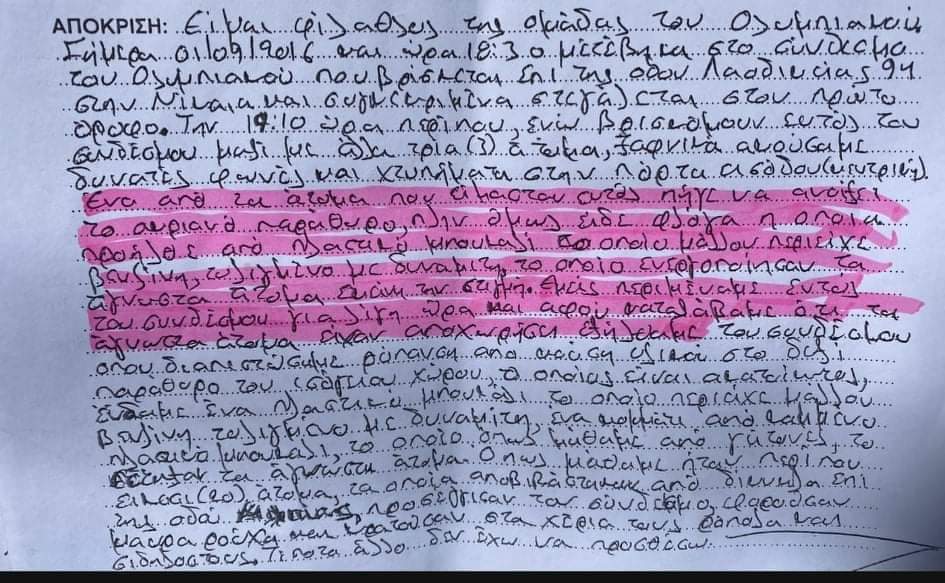 ΑΠΟΚΡΙΣΗ: Είμαι φίλαθλος της ομάδας του Ολυμπιακού
Σήμερα 01/09/2016 και ώρα 18:30 μετέβηκα στο σύνδεσμο
του Ολυμπιακού που βρίσκεται επί της οδού Λαοδικείας 94
στην Νίκαια και συγκεκριμένα στεγάζεται στον πρώτο
όροφο. Την 19.10 ώρα περίπου, ενώ βρισκόμουν εντός του
συνδέσμου μαζί με άλλα τρία (3) άτομα, ξαφνικά ακούσαμε
δυνατές φωνές και χτυπήματα στην πόρτα εισόδου (κεντρική).
Ένα από τα άτομα που είμασταν εντός πήγε να ανοίξει
το παράθυρο, πλην όμως είδε φλόγα η οποία
προήλθε από πλαστικό μπουκάλι το οποίο μάλλον περιείχε
βενζίνη τυλιγμένο με δυναμίτη, το οποίο ενεργοποίησαν τα
άγνωστα άτομα εκείνη την στιγμή. Εμείς περιμέναμε εντός
του συνδέσμου για λίγη ώρα και αφού καταλάβαμε ότι τα
άγνωστα άτομα είχαν αποχωρήσει εξήλθαμε του συνδέσμου
όπου διαπιστώσαμε ρύπανση από καύση υλικού στο δεξί
παράθυρο του ισόγειου χώρου, ο οποίος είναι ακατοίκητος,
είδαμε ένα πλαστικό μπουκάλι το οποίο περιείχε μάλλον
βενζίνη τυλιγμένο με δυναμίτη, ένα κομμάτι από καμμένο
πλαστικό μπουκάλι, το οποίο όπως μάθαμε από γείτονες, το
τα άγνωστα άτομα. Όπως μάθαμε ήταν περίπου
είκοσι (20) άτομα, τα οποία αποβιβάστηκαν από επί
της οδού προσέγγισαν τον σύνδεσμο, φορούσαν
μαύρα ρούχα και κρατούσαν στα χέρια τους ρόπαλα και
Τίποτα άλλο δεν έχω να προσθέσω.